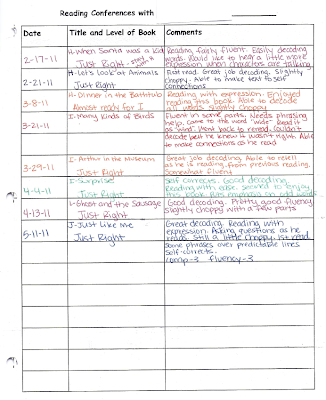 Reading Conferences with
Date Title and Level of Book Comments
2-17-11 H-When Santa was a Kid Just Right Reading fairly fluent. Easily decoding
words. Would like to hear a little more
expression when characters are talking.
2-21-11 H-Let's look at Animals Just Right First read. Great job decoding. Slightly
choppy. Able to make text to self
connections
3-8-11 H-Dinner in the Bathtub Almost ready for I Reading with expression. Enjoyed
reading this book. Able to decode
all words. Slightly choppy
3-21-11 I-Many Kinds of Birds Fluent in some parts. Needs phrasing
help. Came to the word "wide" Read it
as "wied". Went back to reread. Couldn't
decode but he knew it wasn't right. Able
to make connections as he read
3-29-11 I-Arthur in the Museum Just Right Great job decoding. Able to retell
as he is reading from previous reading.
Somewhat fluent
4-4-11 I-Surprise! Just Right Self corrects. Good decoding.
Reading with ease. Seemed to enjoy
the book.
4-13-11 I-Ghost and the Sausage Just Right Good decoding. Pretty good fluency
slightly choppy with a few parts
5-11-11 J-Just Like Me Just Right Great decoding. Reading with
expression. Asking questions as he
reads. Still a little choppy. 1st read
some phrases over predictable lines
Self corrects.
comp-3 fluency-3